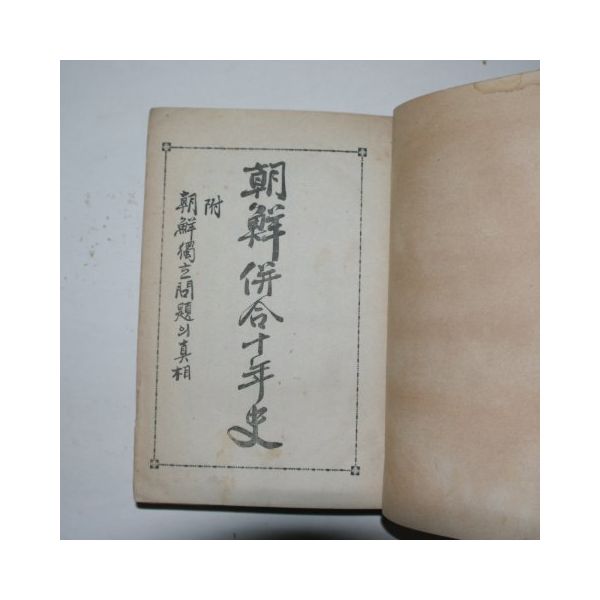 朝鮮併合十年史
附
朝鮮獨立問題의真相